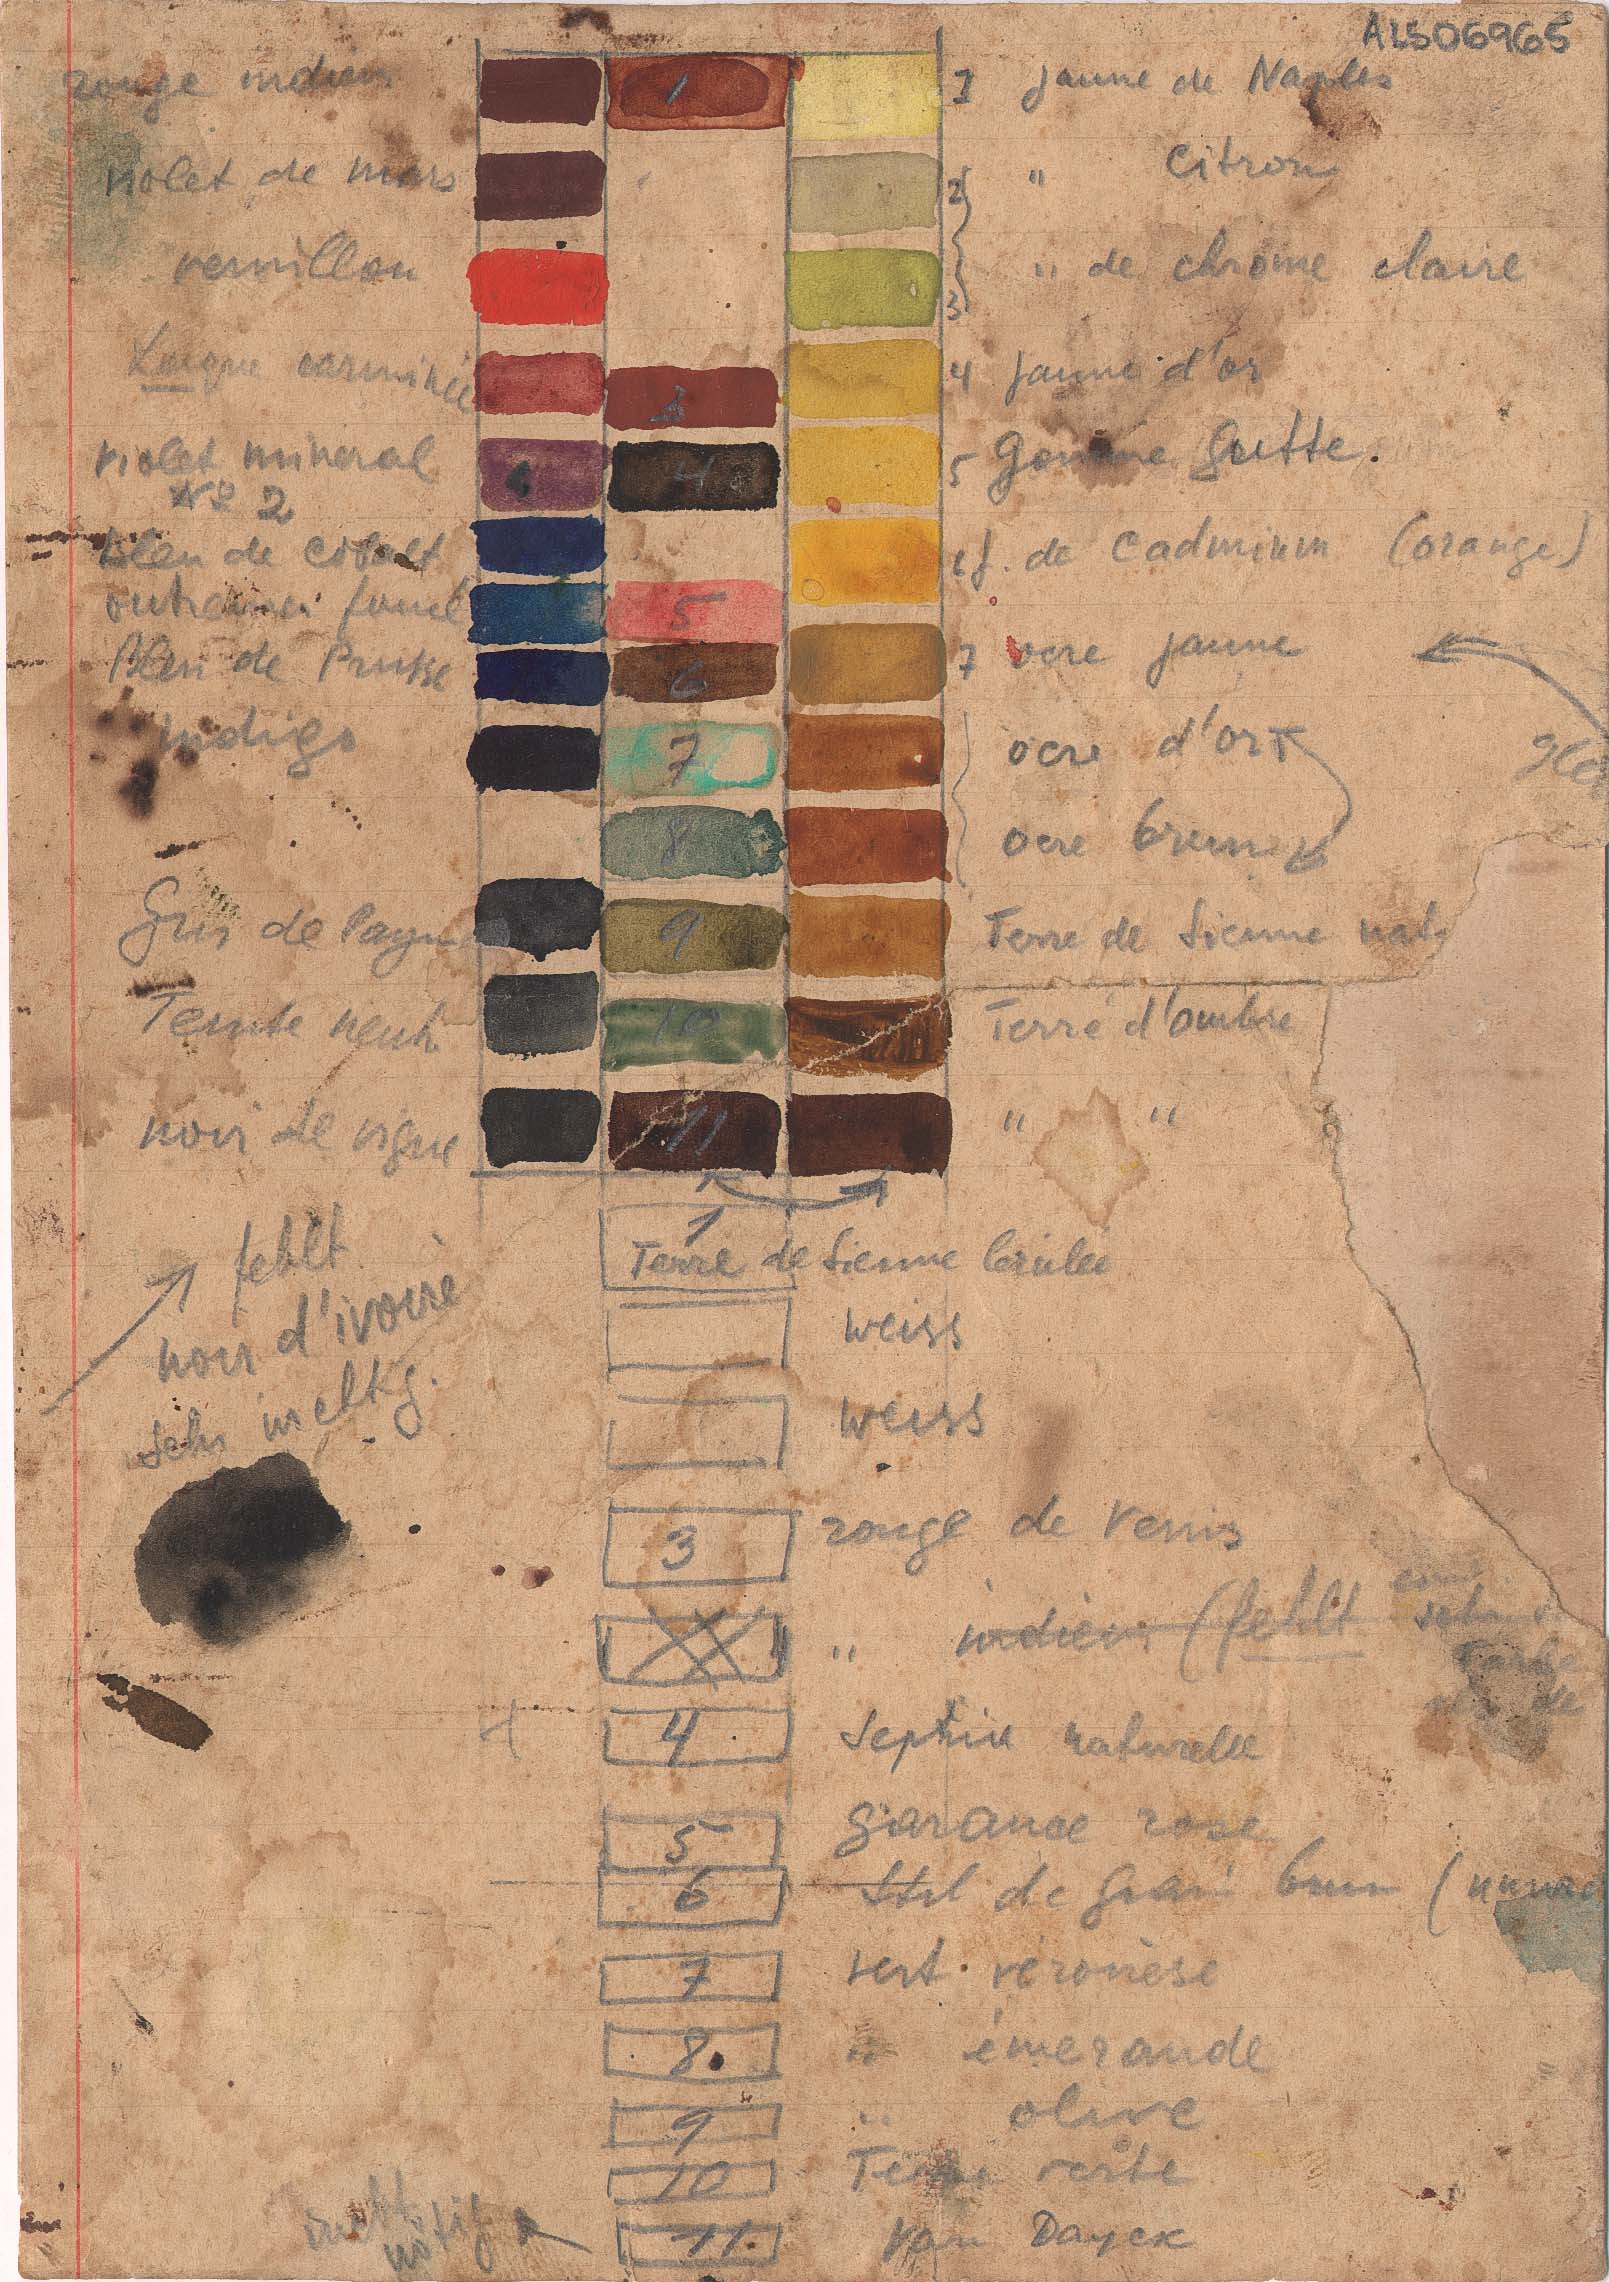 ALS06965
rouge indien 1 1 jaune de Naples
violet de mars 2 " Citron
vermillon 3 " de chrome claire
Laque carminée 3 4 jaune d'or
violet mineral 4 5 Gomme Gutte.
No 2
bleu de Cobalt 6 j. de Cadmium (orange)
outremer foncé 5
Bleu de Prusse 6 7 ocre jaune
indigo 7 ocre d'or
8 ocre brun
Gris de Payne 9 Terre de Sienne nat.
Teinte neutr 10 Terre d'ombre
noir de vigne 11 " "
fehlt 1
noir d'ivoire Terre de Sienne brulée
sehr wichtig. weiss
weiss
3 rouge de Venis
" indien (fehlt
Farbe
4 Sephia naturelle
5 garance rose
6 Stil de grain brun (
7 vert véronèse
8. " émeraude
9 " olive
10 Terre verte
nicht
nötig 11. Van Dayck